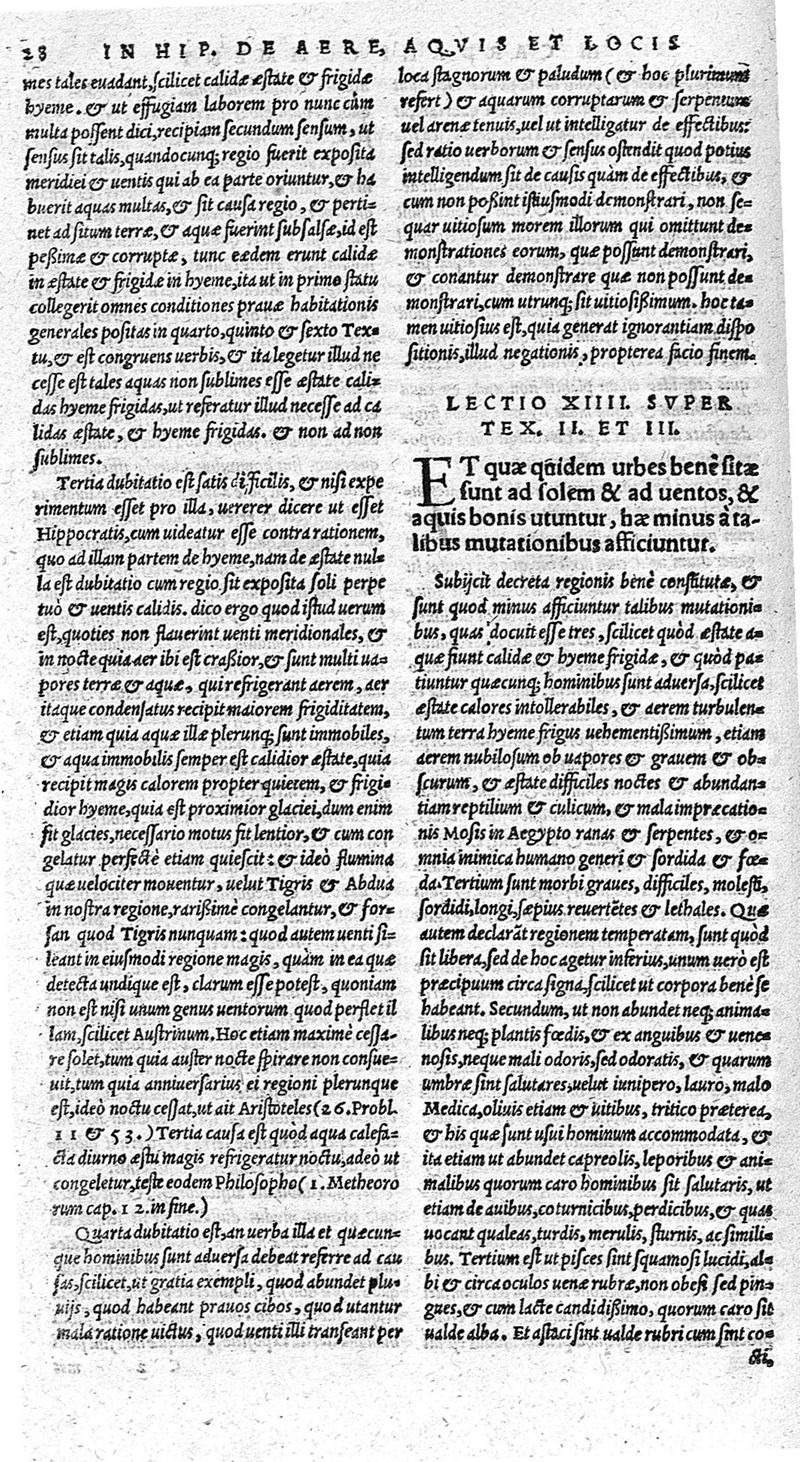 28 IN HIP. DE AERE, AQVIS ET LOCIS
mes tales euadant, scilicet calidæ æstate & frigidæ
hyeme. & ut effugiam laborem pro nunc cùm
multa possent dici, recipiam secundum sensum, ut
sensus sit talis, quandocunq; regio fuerit exposita
meridiei & uentis qui ab ea parte oriuntur, & ha
buerit aquas multas, & sit causa regio, & perti=
net ad situm terræ, & aquæ fuerint subsalsæ, id est
pessimæ & corruptæ, tunc eædem erunt calidæ
in æstate & frigidæ in hyeme, ita ut in primo statu
collegerit omnes conditiones prauæ habitationis
generales positas in quarto, quinto & sexto Tex=
tu, & est congruens uerbis, & ita legetur illud ne
cesse est tales aquas non sublimes esse æstate cali=
das hyeme frigidas, ut referatur illud necesse ad ca
lidas æstate, & hyeme frigidas. & non ad non
sublimes.
Tertia dubitatio est satis difficilis, & nisi expe
rimentum esset pro illa, uererer dicere ut esset
Hippocratis, cum uideatur esse contra rationem,
quo ad illam partem de hyeme, nam de æstate nul=
la est dubitatio cum regio sit exposita soli perpe
tuò & uentis calidis. dico ergo quod istud uerum
est, quoties non flauerint uenti meridionales, &
in nocte quia aer ibi est crassior, & sunt multi ua=
pores terræ & aquæ, qui refrigerant aerem, aer
itaque condensatus recipit maiorem frigiditatem,
& etiam quia aquæ illæ plerunq; sunt immobiles,
& aqua immobilis semper est calidior æstate, quia
recipit magis calorem propter quietem, & frigi=
dior hyeme, quia est proximior glaciei, dum enim
fit glacies, necessario motus fit lentior, & cum con
gelatur perfectè etiam quiescit: & ideò flumina
quæ uelociter mouentur, uelut Tigris & Abdua
in nostra regione, rarissimè congelantur, & for=
san quod Tigris nunquam: quod autem uenti si=
leant in eiusmodi regione magis, quàm in ea quæ
detecta undique est, clarum esse potest, quoniam
non est nisi unum genus uentorum quod perflet il
lam, scilicet Austrinum. Hoc etiam maximè cessa=
re solet, tum quia auster nocte spirare non consue=
uit, tum quia anniuersarius ei regioni plerunque
est, ideò noctu cessat, ut ait Aristoteles (26. Probl.
11 & 53.) Tertia causa est quòd aqua calefa=
cta diurno æstu magis refrigeratur noctu, adeò ut
congeletur, teste eodem Philosopho (1. Metheoro
rum cap. 12. in fine.)
Quarta dubitatio est, an uerba illa et quæcun=
que hominibus sunt aduersa debeat referre ad cau
sas, scilicet, ut gratia exempli, quod abundet plu=
uijs, quod habeant prauos cibos, quod utantur
mala ratione uictus, quod uenti illi transeant per
loca stagnorum & paludum (& hoc plurimum
refert) & aquarum corruptarum & serpentum
uel arenæ tenuis, uel ut intelligatur de effectibus:
sed ratio uerborum & sensus ostendit quod potius
intelligendum sit de causis quàm de effectibus, &
cum non possint istiusmodi demonstrari, non se=
quar uitiosum morem illorum qui omittunt de=
monstrationes eorum, quæ possunt demonstrari,
& conantur demonstrare quæ non possunt de=
monstrari, cum utrunq; sit uitiosissimum. hoc ta=
men uitiosius est, quia generat ignorantiam dispo
sitionis, illud negationis, propterea facio finem.
LECTIO XIIII. SVPER
TEX. II. ET III.
ET quæ quidem urbes benè sitæ
sunt ad solem & ad uentos, &
aquis bonis utuntur, hæ minus à ta-
libus mutationibus afficiuntur.
Subijcit decreta regionis benè constitutæ, &
sunt quod minus afficiuntur talibus mutationi=
bus, quas docuit esse tres, scilicet quòd æstate a=
quæ fiunt calidæ & hyeme frigidæ, & quòd pa=
tiuntur quæcunq; hominibus sunt aduersa, scilicet
æstate calores intollerabiles, & aerem turbulen=
tum terra hyeme frigus uehementissimum, etiam
aerem nubilosum ob uapores & grauem & ob=
scurum, & æstate difficiles noctes & abundan=
tiam reptilium & culicum, & mala impræcatio=
nis Mosis in Aegypto ranas & serpentes, & o=
mnia inimica humano generi & sordida & fœ=
da. Tertium sunt morbi graues, difficiles, molesti,
sordidi, longi, sæpius reuertẽtes & lethales. Quæ
autem declarãt regionem temperatam, sunt quòd
sit libera, sed de hoc agetur inferius, unum uerò est
præcipuum circa signa, scilicet ut corpora benè se
habeant. Secundum, ut non abundet neq; anima=
libus neq; plantis fœdis, & ex anguibus & uene=
nosis, neque mali odoris, sed odoratis, & quarum
umbræ sint salutares, uelut iunipero, lauro, malo
Medica, oliuis etiam & uitibus, tritico præterea,
& his quæ sunt usui hominum accommodata, &
ita etiam ut abundet capreolis, leporibus & ani=
malibus quorum caro hominibus sit salutaris, ut
etiam de auibus, coturnicibus, perdicibus, & quas
uocant qualeas, turdis, merulis, sturnis, ac simili=
bus. Tertium est ut pisces sint squamosi lucidi, al=
bi & circa oculos uenæ rubræ, non obesi sed pin=
gues, & cum lacte candidissimo, quorum caro sit
ualde alba. Et astaci sint ualde rubri cum sint co=
cti,